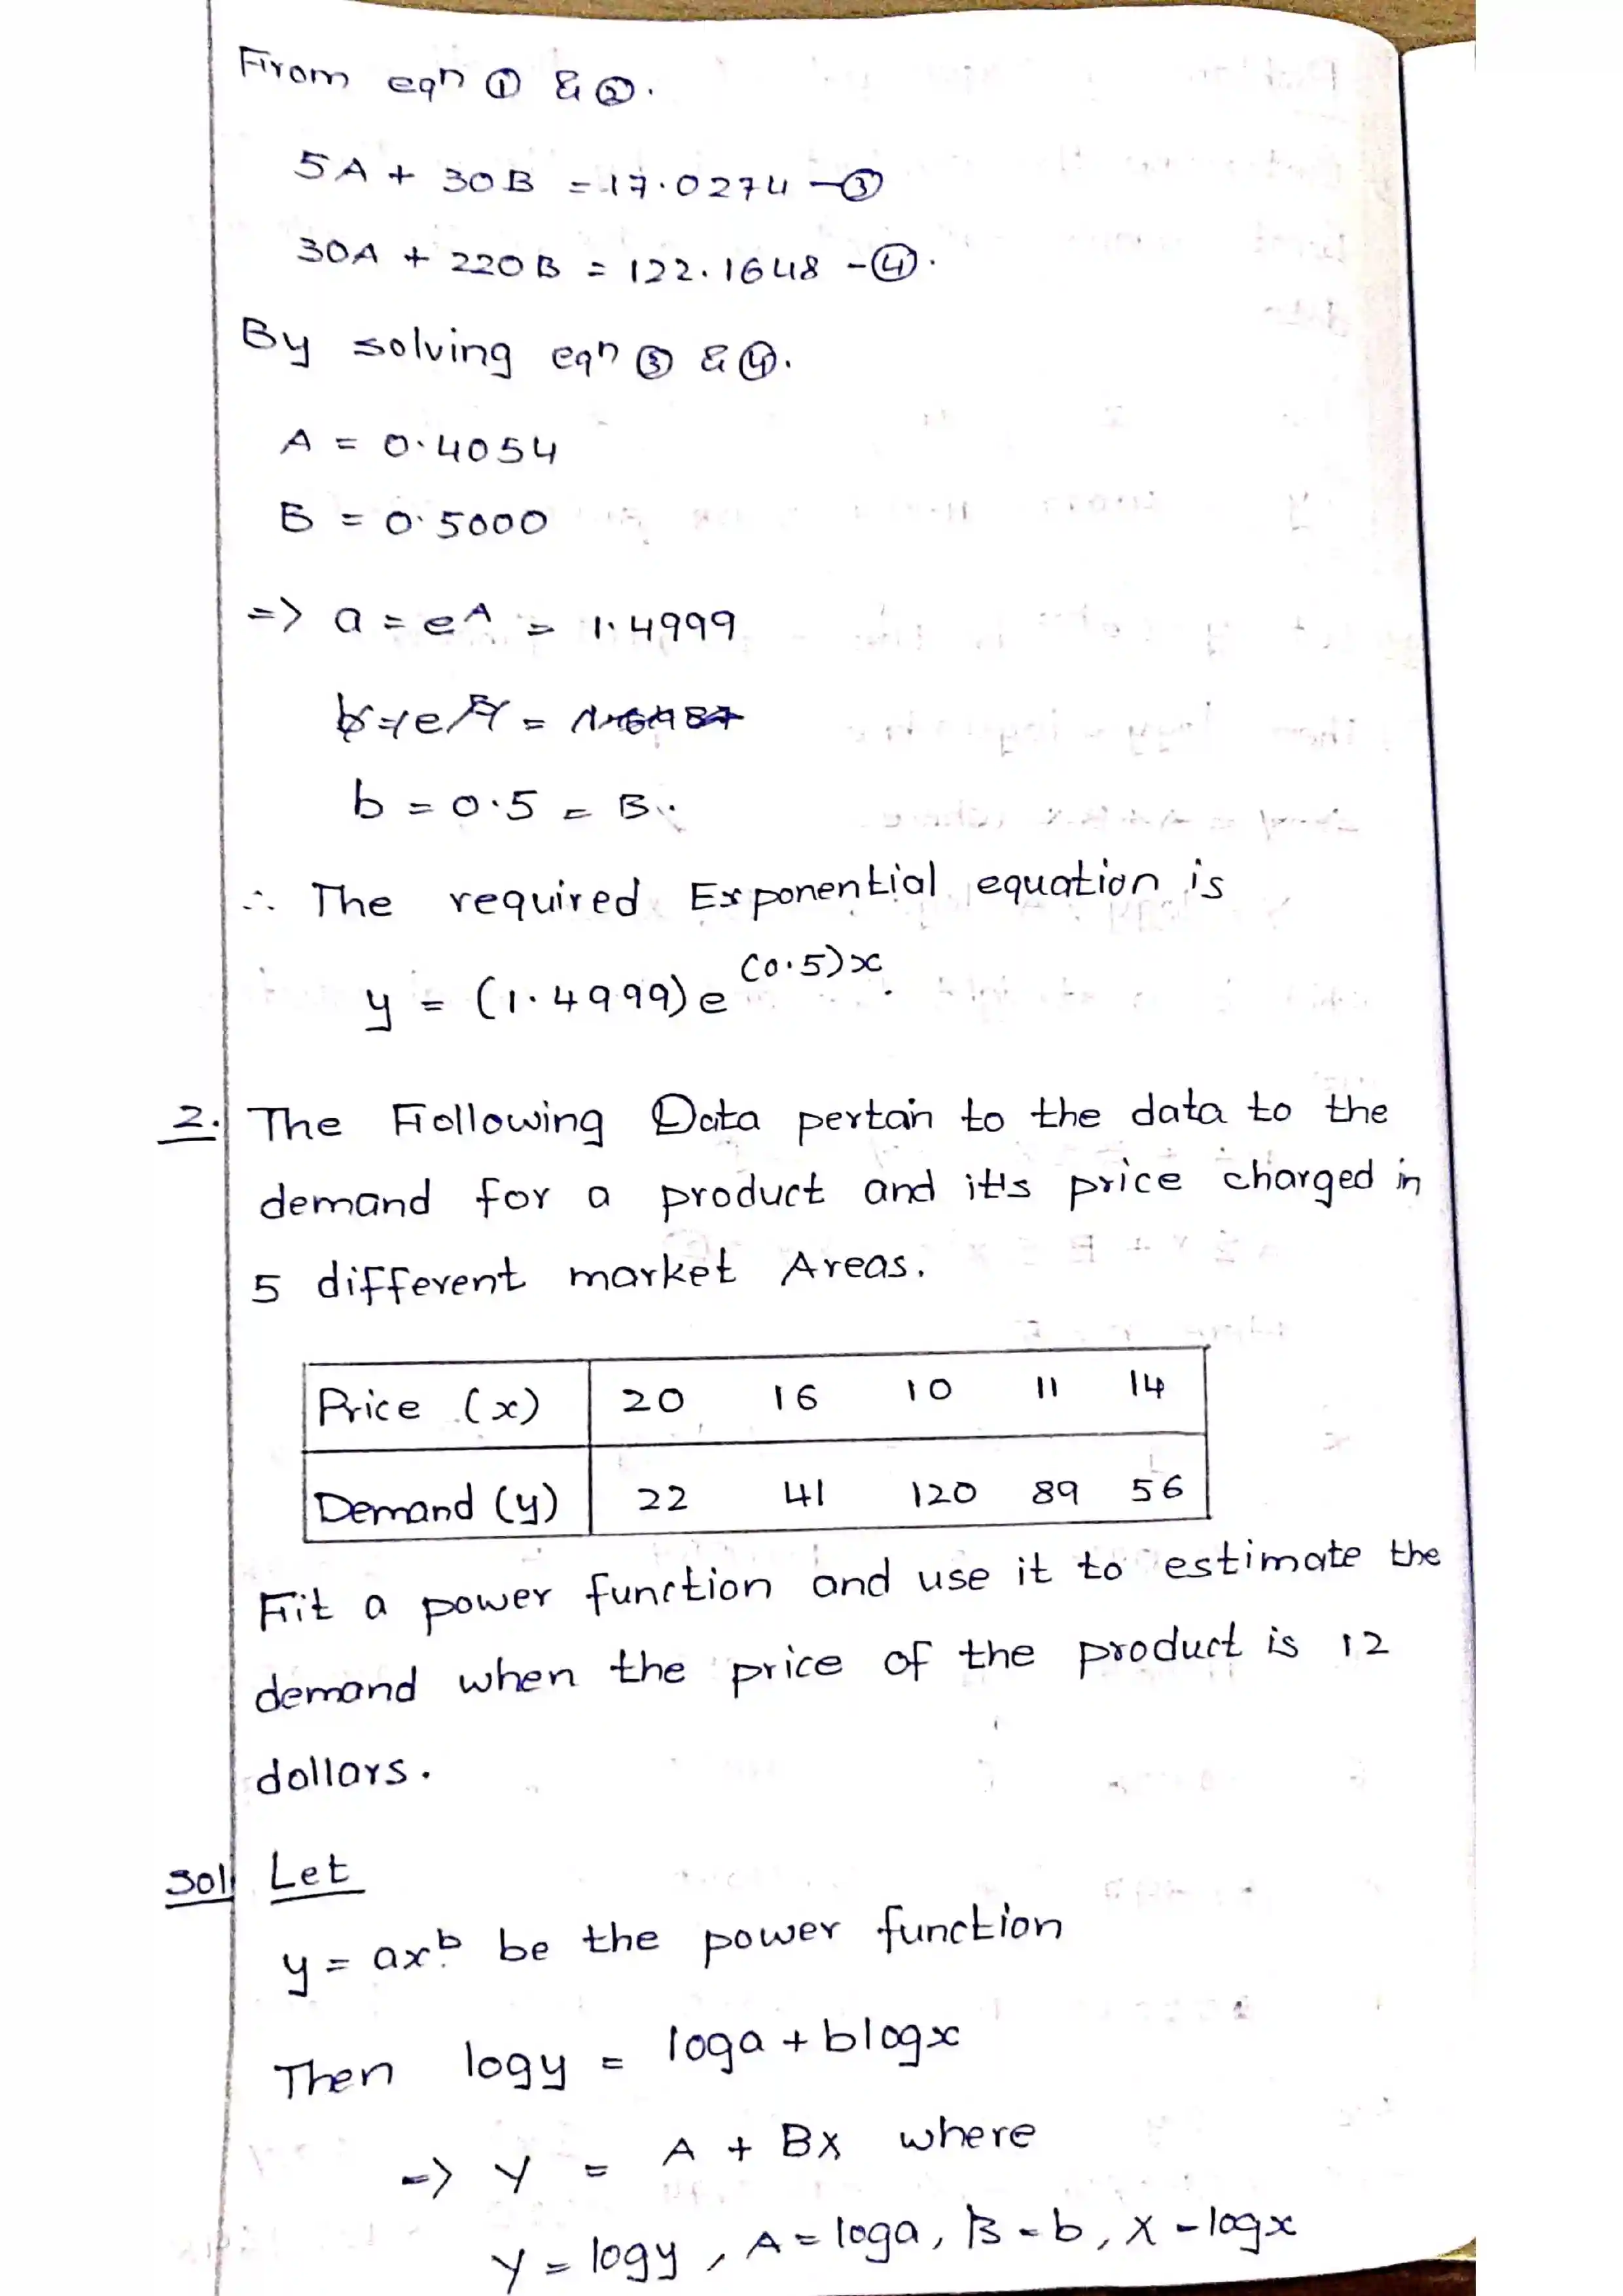 From eqn ① & ②.
5A + 30B = 17.0274 -③
30A + 220B = 122.1648 -④.
By solving eqn ③ & ④.
A = 0.4054
B = 0.5000
=> a = e^A = 1.4999
b = 0.5 = B.
∴ The required Exponential equation is
y = (1.4999) e^(0.5)x.
2. The Following Data pertain to the data to the
demand for a product and it's price charged in
5 different market Areas.
Price (x) 20 16 10 11 14
Demand (y) 22 41 120 89 56
Fit a power function and use it to estimate the
demand when the price of the product is 12
dollars.
Sol Let
y = ax^b be the power function
Then logy = loga + blogx
=> Y = A + BX where
Y = logy, A = loga, B = b, X = logx